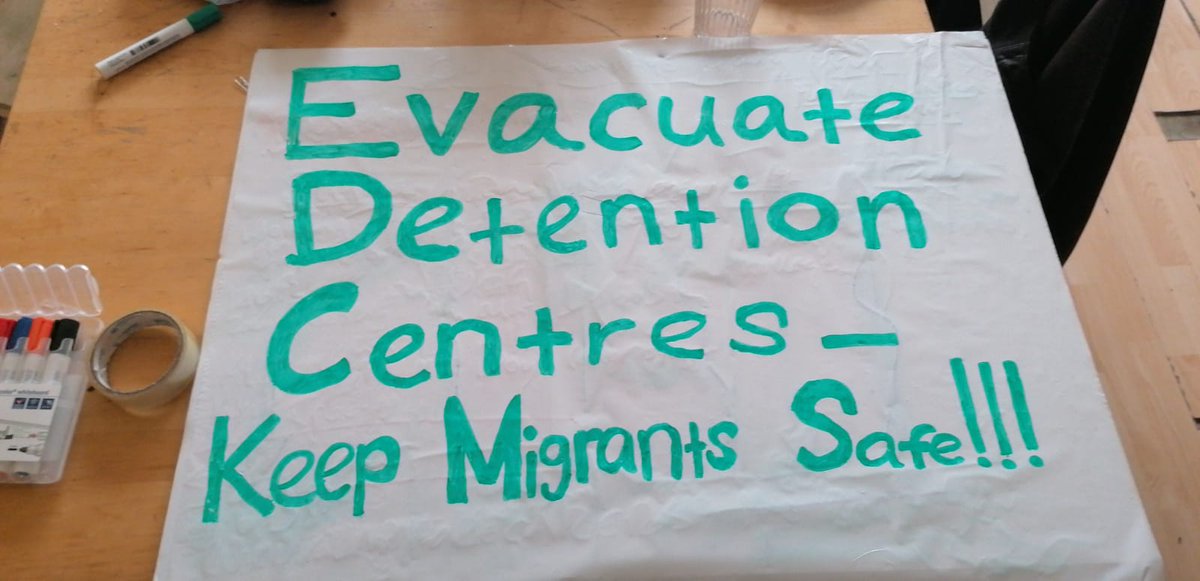 Evacuate
Detention
Centres –
Keep Migrants Safe!!!
whiteboard